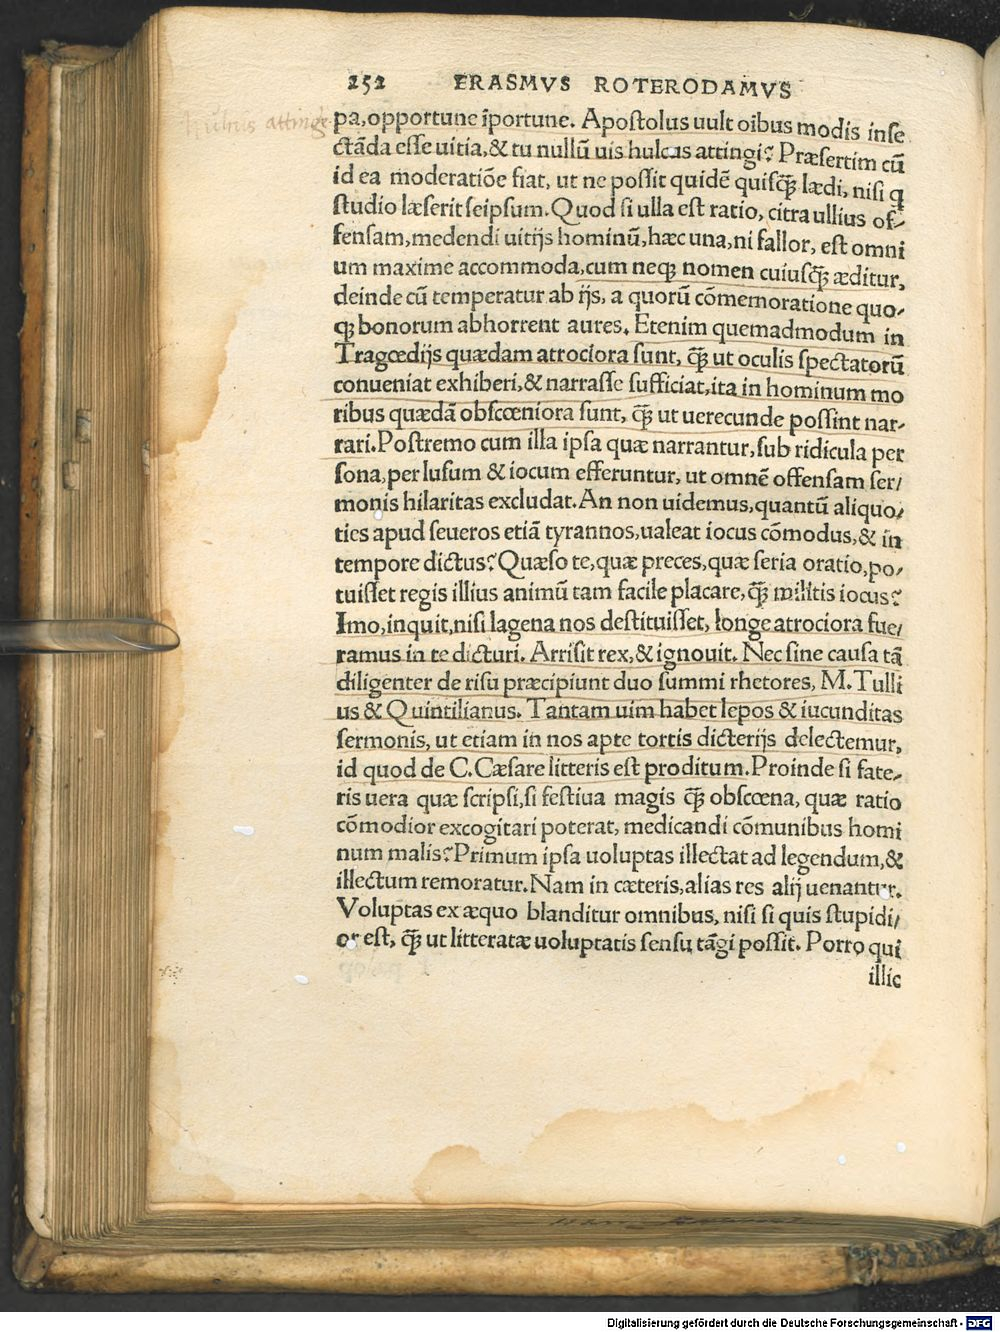 252 ERASMVS ROTERODAMVS
hulcus attinge
pa, opportune īportune. Apostolus uult oībus modis inse
ctāda esse uitia, & tu nullū uis hulcus attingi? Præsertim cū
id ea moderatiōe fiat, ut ne possit quidē quisꝗ̄ lædi, nisi q
studio læserit seipsum. Quod si ulla est ratio, citra ullius of-
fensam, medendi uitijs hominū, hæc una, ni fallor, est omni
um maxime accommoda, cum neqꝫ nomen cuiusꝗ̄ æditur,
deinde cū temperatur ab ijs, a quorū cōmemoratione quo-
qꝫ bonorum abhorrent aures. Etenim quemadmodum in
Tragœdijs quædam atrociora sunt, ꝗ̄ ut oculis spectatorū
conueniat exhiberi, & narrasse sufficiat, ita in hominum mo
ribus quædā obscœniora sunt, ꝗ̄ ut uerecunde possint nar-
rari. Postremo cum illa ipsa quæ narrantur, sub ridicula per
sona, per lusum & iocum efferuntur, ut omnē offensam ser-
monis hilaritas excludat. An non uidemus, quantū aliquo-
ties apud seueros etiā tyrannos, ualeat iocus cōmodus, & in
tempore dictus? Quæso te, quæ preces, quæ seria oratio, po-
tuisset regis illius animū tam facile placare, ꝗ̄ militis iocus?
Imo, inquit, nisi lagena nos destituisset, longe atrociora fue-
ramus in te dicturi. Arrisit rex, & ignouit. Nec sine causa tā
diligenter de risu præcipiunt duo summi rhetores, M. Tulli
us & Quintilianus. Tantam uim habet lepos & iucunditas
sermonis, ut etiam in nos apte tortis dicterijs delectemur,
id quod de C. Cæsare litteris est proditum. Proinde si fate-
ris uera quæ scripsi, si festiua magis ꝗ̄ obscœna, quæ ratio
cōmodior excogitari poterat, medicandi cōmunibus homi
num malis? Primum ipsa uoluptas illectat ad legendum, &
illectum remoratur. Nam in cæteris, alias res alij uenantur.
Voluptas ex æquo blanditur omnibus, nisi si quis stupidi-
or est, ꝗ̄ ut litteratæ uoluptatis sensu tāgi possit. Porro qui
illic
Digitalisierung gefördert durch die Deutsche Forschungsgemeinschaft - DFG